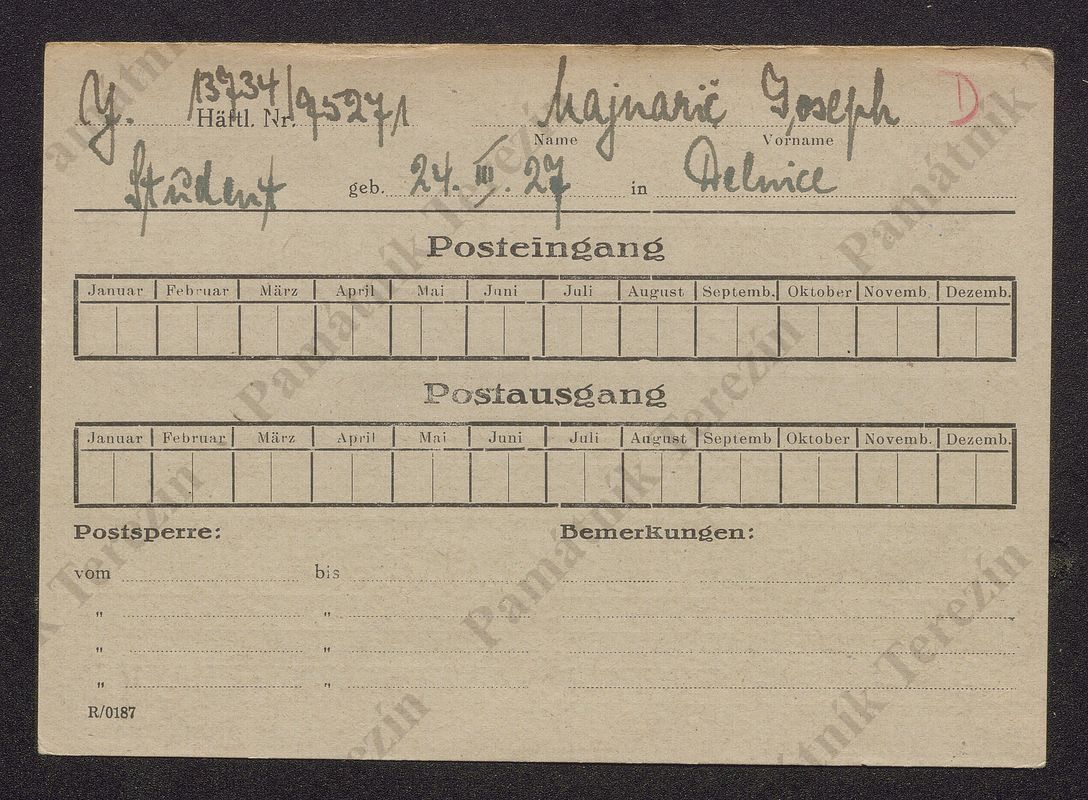 Y. 13734/75271 Majnarić Joseph D
Häftl. Nr. Name Vorname
Student geb. 24. III. 27 in Delnice
Posteingang
Januar Februar März April Mai Juni Juli August Septemb. Oktober Novemb. Dezemb.
Postausgang
Januar Februar März April Mai Juni Juli August Septemb Oktober Novemb. Dezemb.
Postsperre: Bemerkungen:
vom bis
" "
" "
" "
R/0187
Památník Terezín
Památník Terezín
Památník Terezín
Památník Terezín